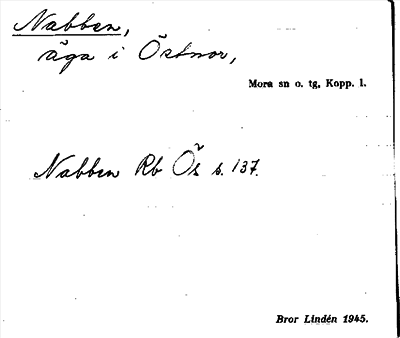 Nabben,
äga i Östnor,
Mora sn o. tg, Kopp. l.
Nabben Rb Ös s. 137.
Bror Lindén 1945.